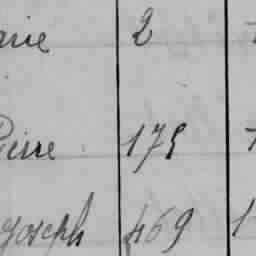 arie 2
Pierre 175
Joseph 469 1